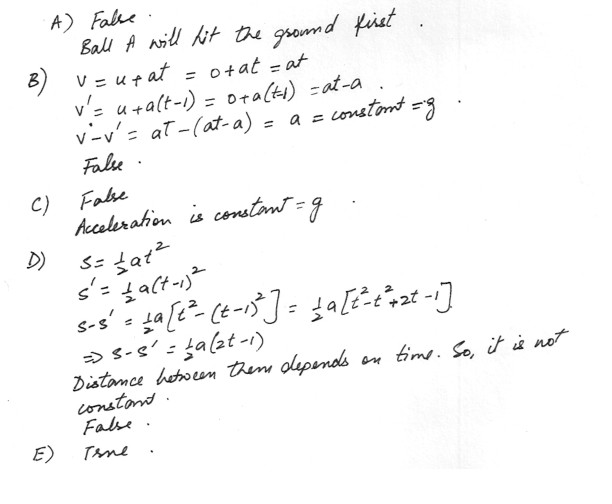 A) False .
Ball A will hit the ground first .
B) v = u + at = 0 + at = at
v' = u + a(t-1) = 0 + a(t-1) = at - a .
v - v' = aT - (at - a) = a = constant = g .
False .
C) False
Acceleration is constant = g .
D) s = ½at²
s' = ½a(t-1)²
s-s' = ½a[t² - (t-1)²] = ½a[t² - t² + 2t - 1]
⇒ s-s' = ½a(2t-1)
Distance between them depends on time. So, it is not
constant .
False .
E) True .